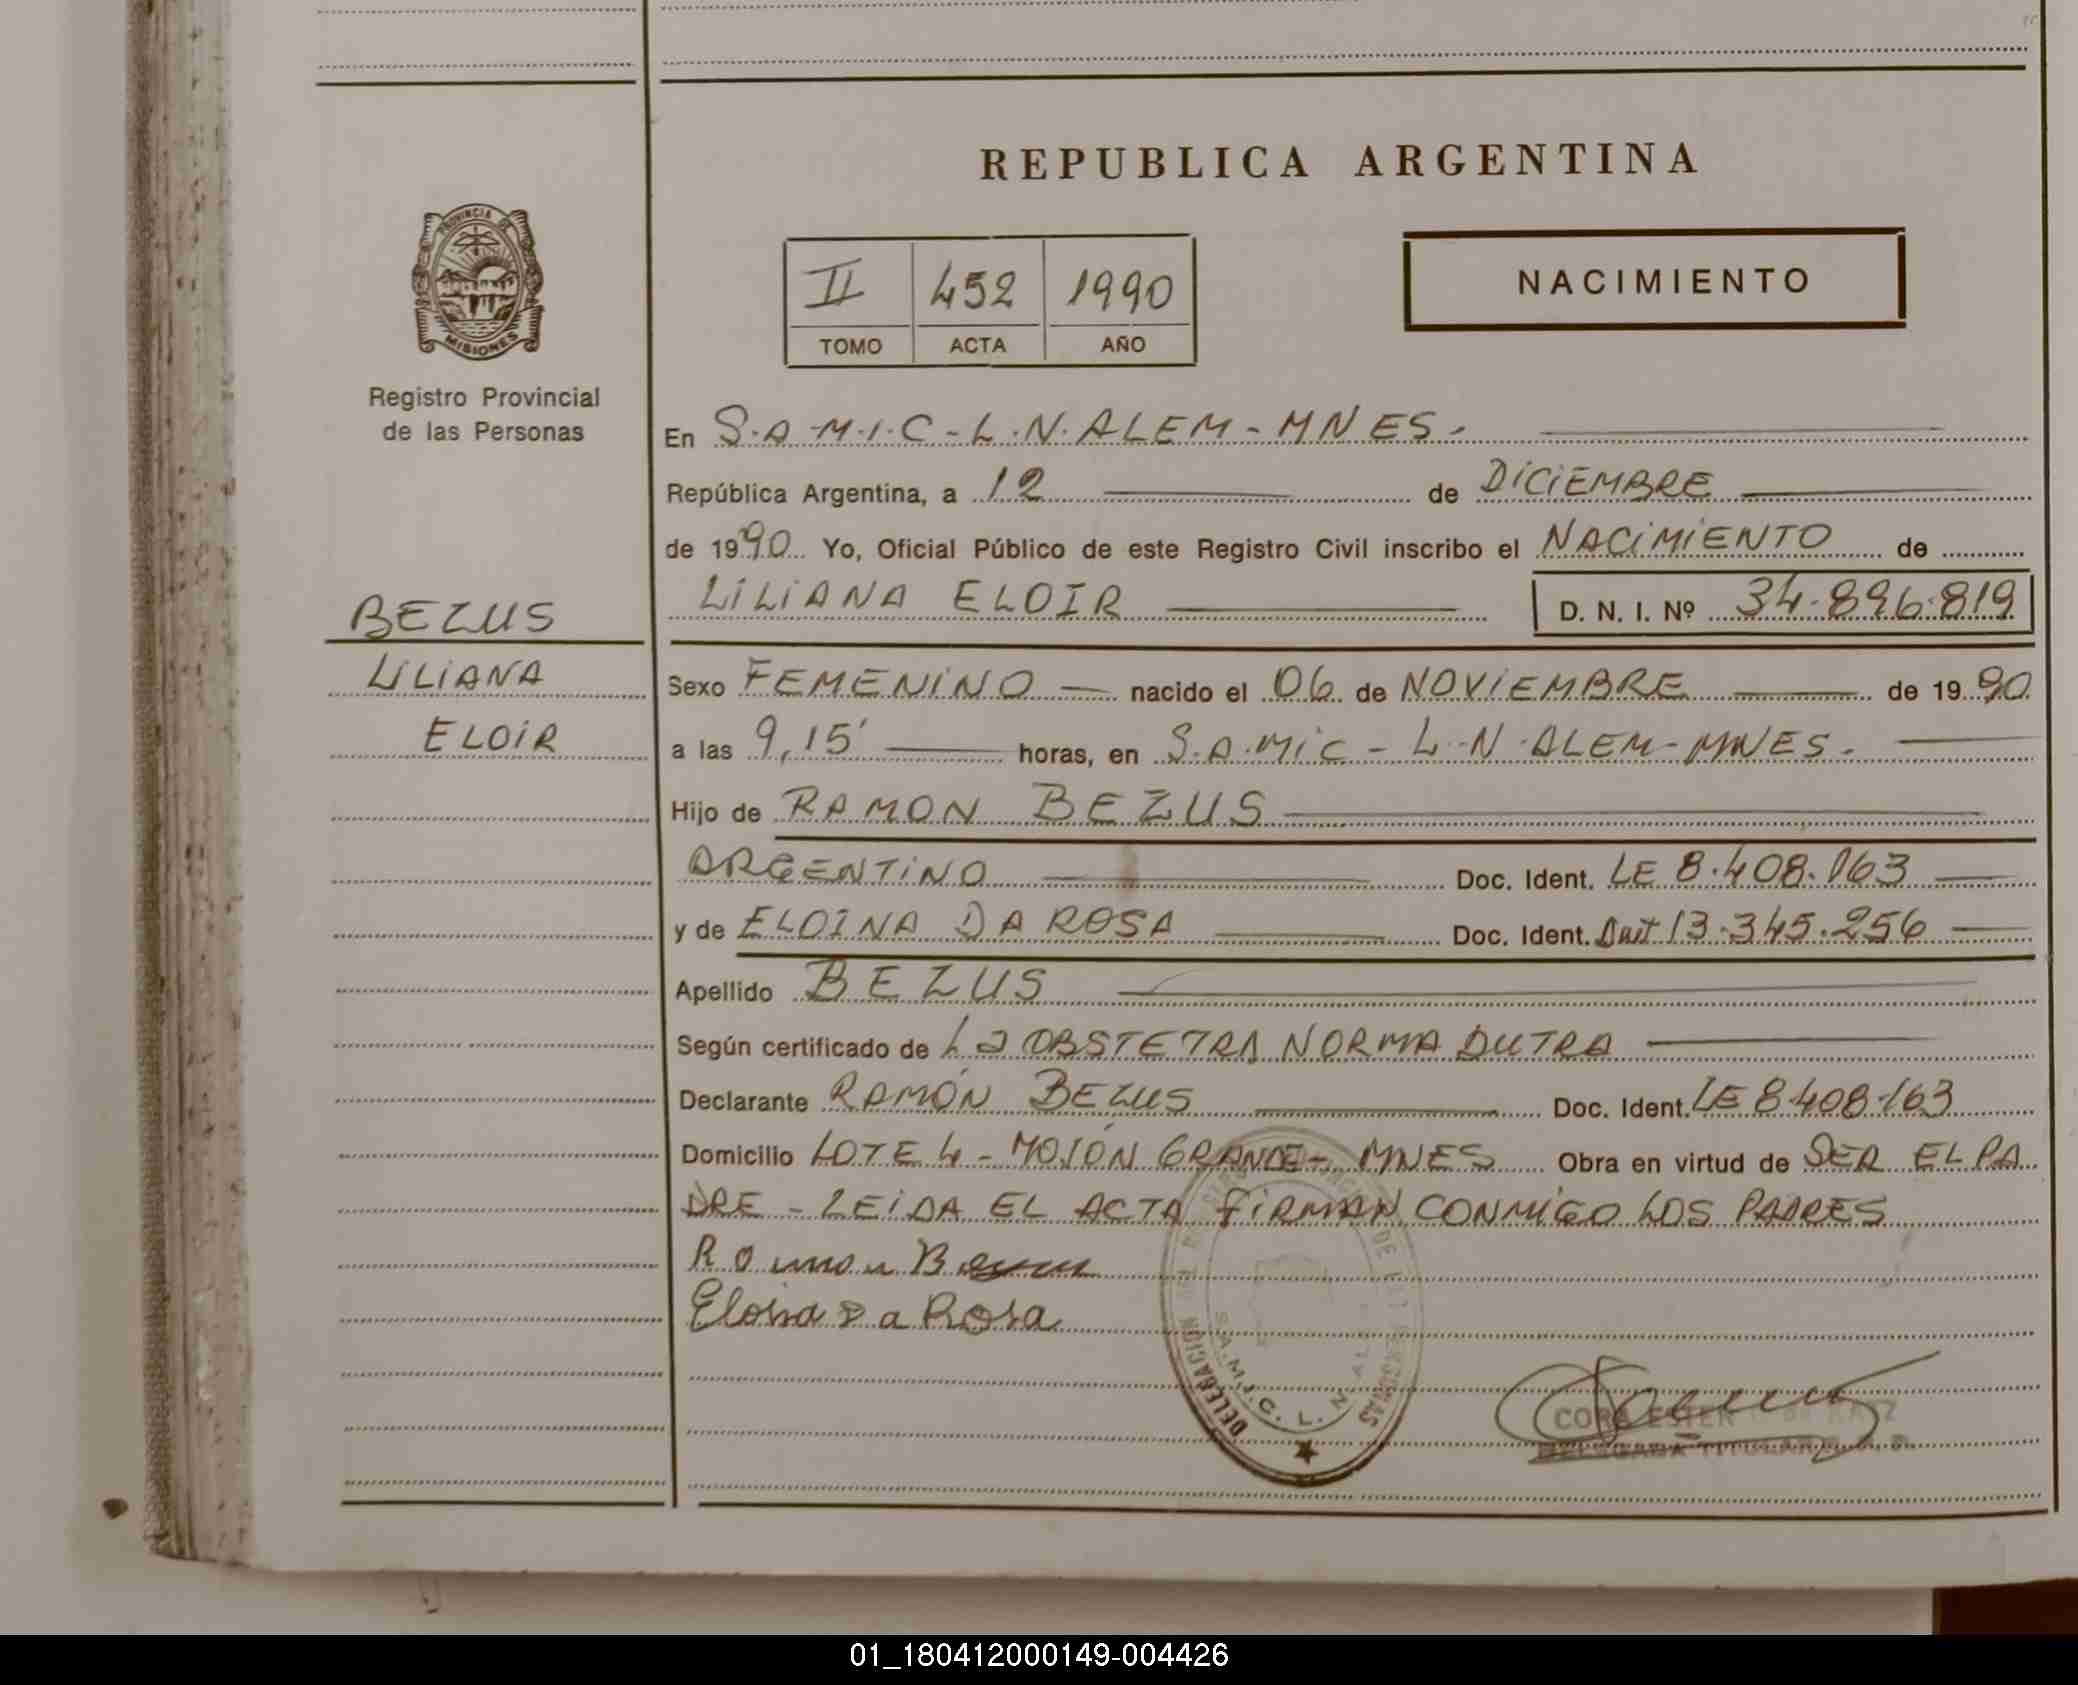 REPUBLICA ARGENTINA
PROVINCIA DE
MISIONES
Registro Provincial
de las Personas
II 452 1990
TOMO ACTA AÑO
NACIMIENTO
En S.A.M.I.C - L.N. ALEM - MNES.
República Argentina, a 12 de DICIEMBRE
de 1990 Yo, Oficial Público de este Registro Civil inscribo el NACIMIENTO de
LILIANA ELOIR D. N. I. Nº 34.896.819
BEZUS
LILIANA
ELOIR
Sexo FEMENINO nacido el 06 de NOVIEMBRE de 1990
a las 9,15' horas, en S.A.MIC - L.N. ALEM - MNES.
Hijo de RAMON BEZUS
ARGENTINO Doc. Ident. LE 8.408.163
y de ELOINA DA ROSA Doc. Ident. 13.345.256
Apellido BEZUS
Según certificado de La OBSTETRA NORMA DUTRA
Declarante RAMÓN BEZUS Doc. Ident. LE 8.408.163
Domicilio LOTE 4 - MOJÓN GRANDE - MNES Obra en virtud de SER EL PA
DRE - LEIDA EL ACTA FIRMAN CONMIGO LOS PADRES
Ramon
Eloina Da Rosa
DELEGACION DE PERSONAS
S.A.M.I.C. L. N. AL
CORA ESTER de KATZ
DELEGADA TITULAR
01_180412000149-004426